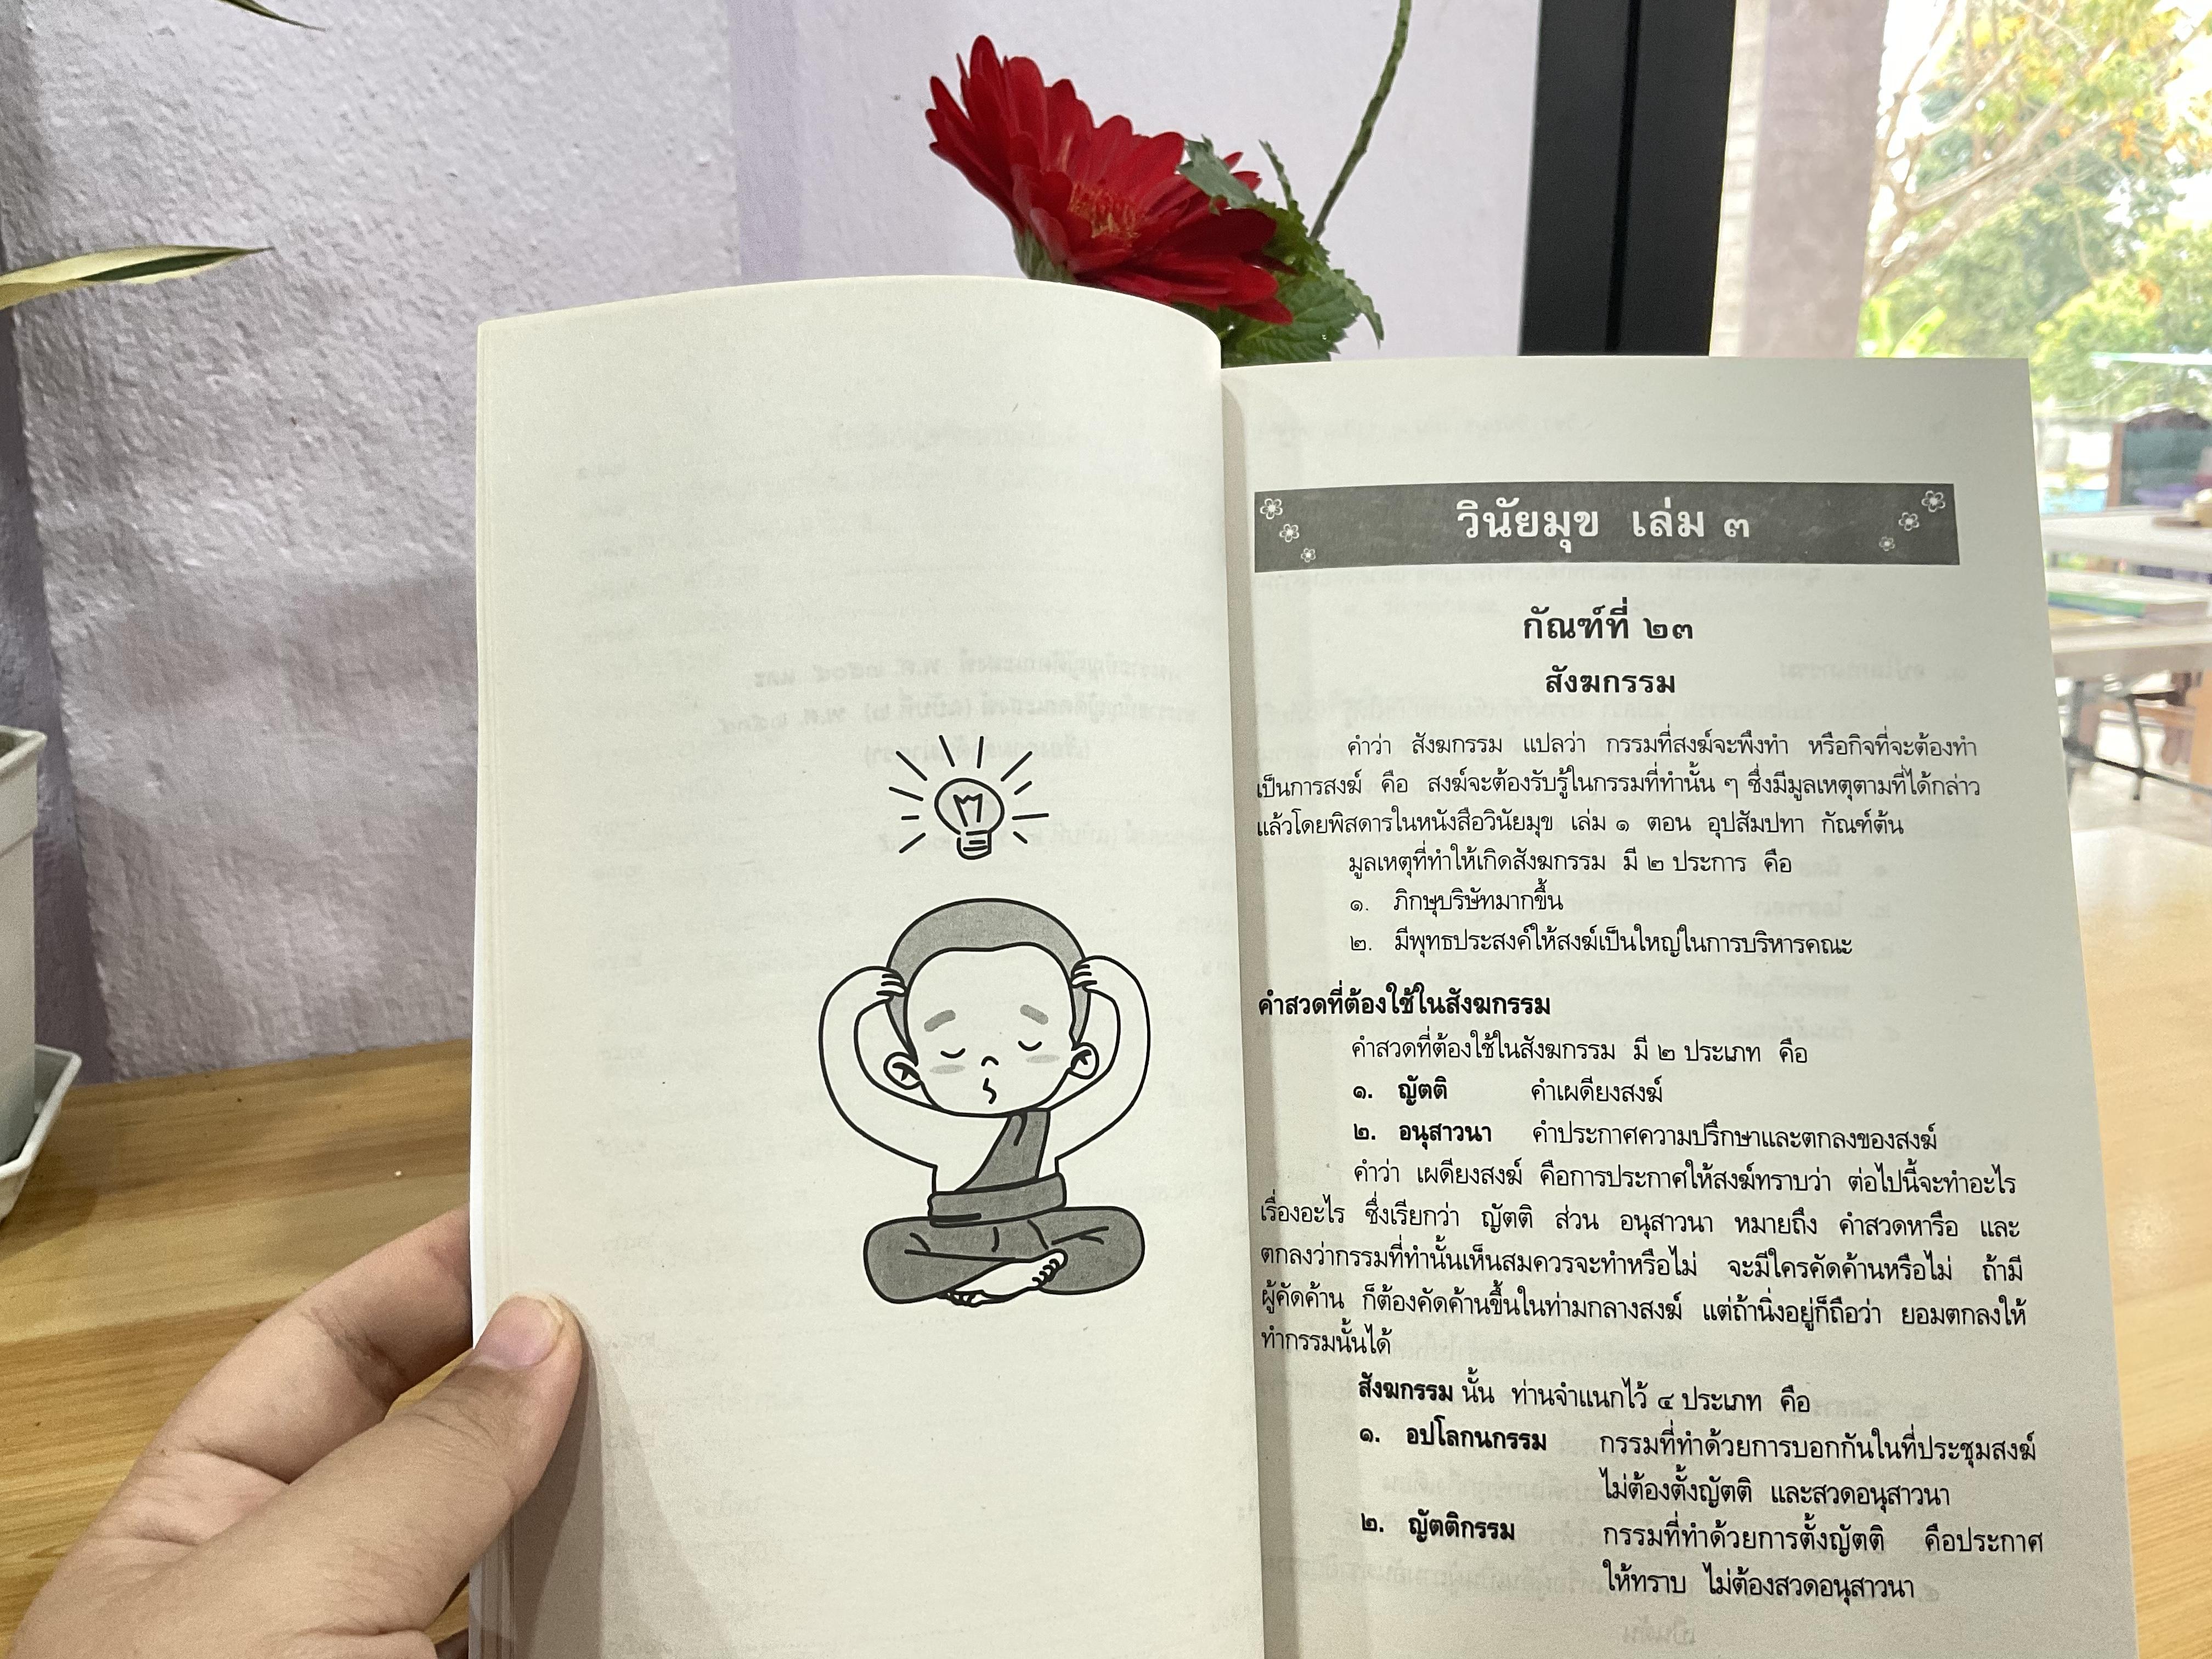 วินัยมุข เล่ม ๓
กัณฑ์ที่ ๒๓
สังฆกรรม
คำว่า สังฆกรรม แปลว่า กรรมที่สงฆ์จะพึงทำ หรือกิจที่จะต้องทำ
เป็นการสงฆ์ คือ สงฆ์จะต้องรับรู้ในกรรมที่ทำนั้น ๆ ซึ่งมีมูลเหตุตามที่ได้กล่าว
แล้วโดยพิสดารในหนังสือวินัยมุข เล่ม ๑ ตอน อุปสัมปทา กัณฑ์ต้น
มูลเหตุที่ทำให้เกิดสังฆกรรม มี ๒ ประการ คือ
๑. ภิกษุบริษัทมากขึ้น
๒. มีพุทธประสงค์ให้สงฆ์เป็นใหญ่ในการบริหารคณะ
คำสวดที่ต้องใช้ในสังฆกรรม
คำสวดที่ต้องใช้ในสังฆกรรม มี ๒ ประเภท คือ
๑. ญัตติ คำเผดียงสงฆ์
๒. อนุสาวนา คำประกาศความปรึกษาและตกลงของสงฆ์
คำว่า เผดียงสงฆ์ คือการประกาศให้สงฆ์ทราบว่า ต่อไปนี้จะทำอะไร
เรื่องอะไร ซึ่งเรียกว่า ญัตติ ส่วน อนุสาวนา หมายถึง คำสวดหารือ และ
ตกลงว่ากรรมที่ทำนั้นเห็นสมควรจะทำหรือไม่ จะมีใครคัดค้านหรือไม่ ถ้ามี
ผู้คัดค้าน ก็ต้องคัดค้านขึ้นในท่ามกลางสงฆ์ แต่ถ้านิ่งอยู่ก็ถือว่า ยอมตกลงให้
ทำกรรมนั้นได้
สังฆกรรม นั้น ท่านจำแนกไว้ ๔ ประเภท คือ
๑. อปโลกนกรรม กรรมที่ทำด้วยการบอกกันในที่ประชุมสงฆ์
ไม่ต้องตั้งญัตติ และสวดอนุสาวนา
๒. ญัตติกรรม กรรมที่ทำด้วยการตั้งญัตติ คือประกาศ
ให้ทราบ ไม่ต้องสวดอนุสาวนา